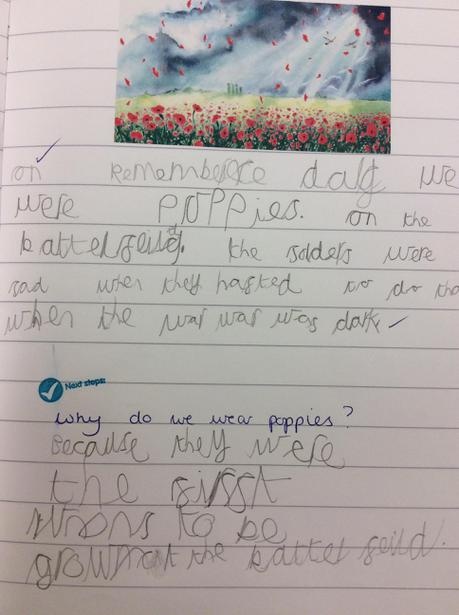 on remembere day we
were poppies. on the
battelfeild. the solders were
sad when they hasted to do tha
when the war was was dark
Next steps:
why do we wear poppies?
Because they were
the first
to be
grown at the battel feild.